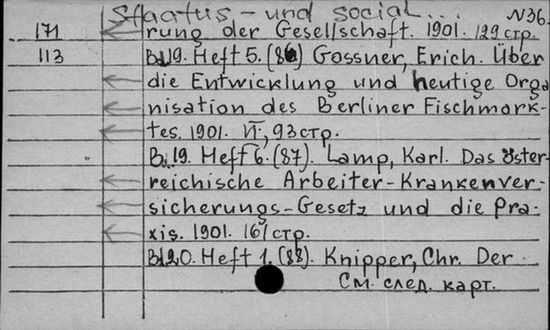 Staatus- und social... N36.
171 rung der Gesellschaft. 1901. 129 стр.
113 Bd.19. Heft 5. (86) Gossner, Erich. Über
die Entwicklung und heutige Orga
nisation des Berliner Fischmark-
tes. 1901. VI, 93 стр.
Bd.19. Heft 6. (87). Lamp, Karl. Das öster-
reichische Arbeiter-Krankenver-
sicherungs-Gesetz und die Pra-
xis. 1901. 161 стр.
Bd.20. Heft 1. (88). Knipper, Chr. Der
См. след. карт.